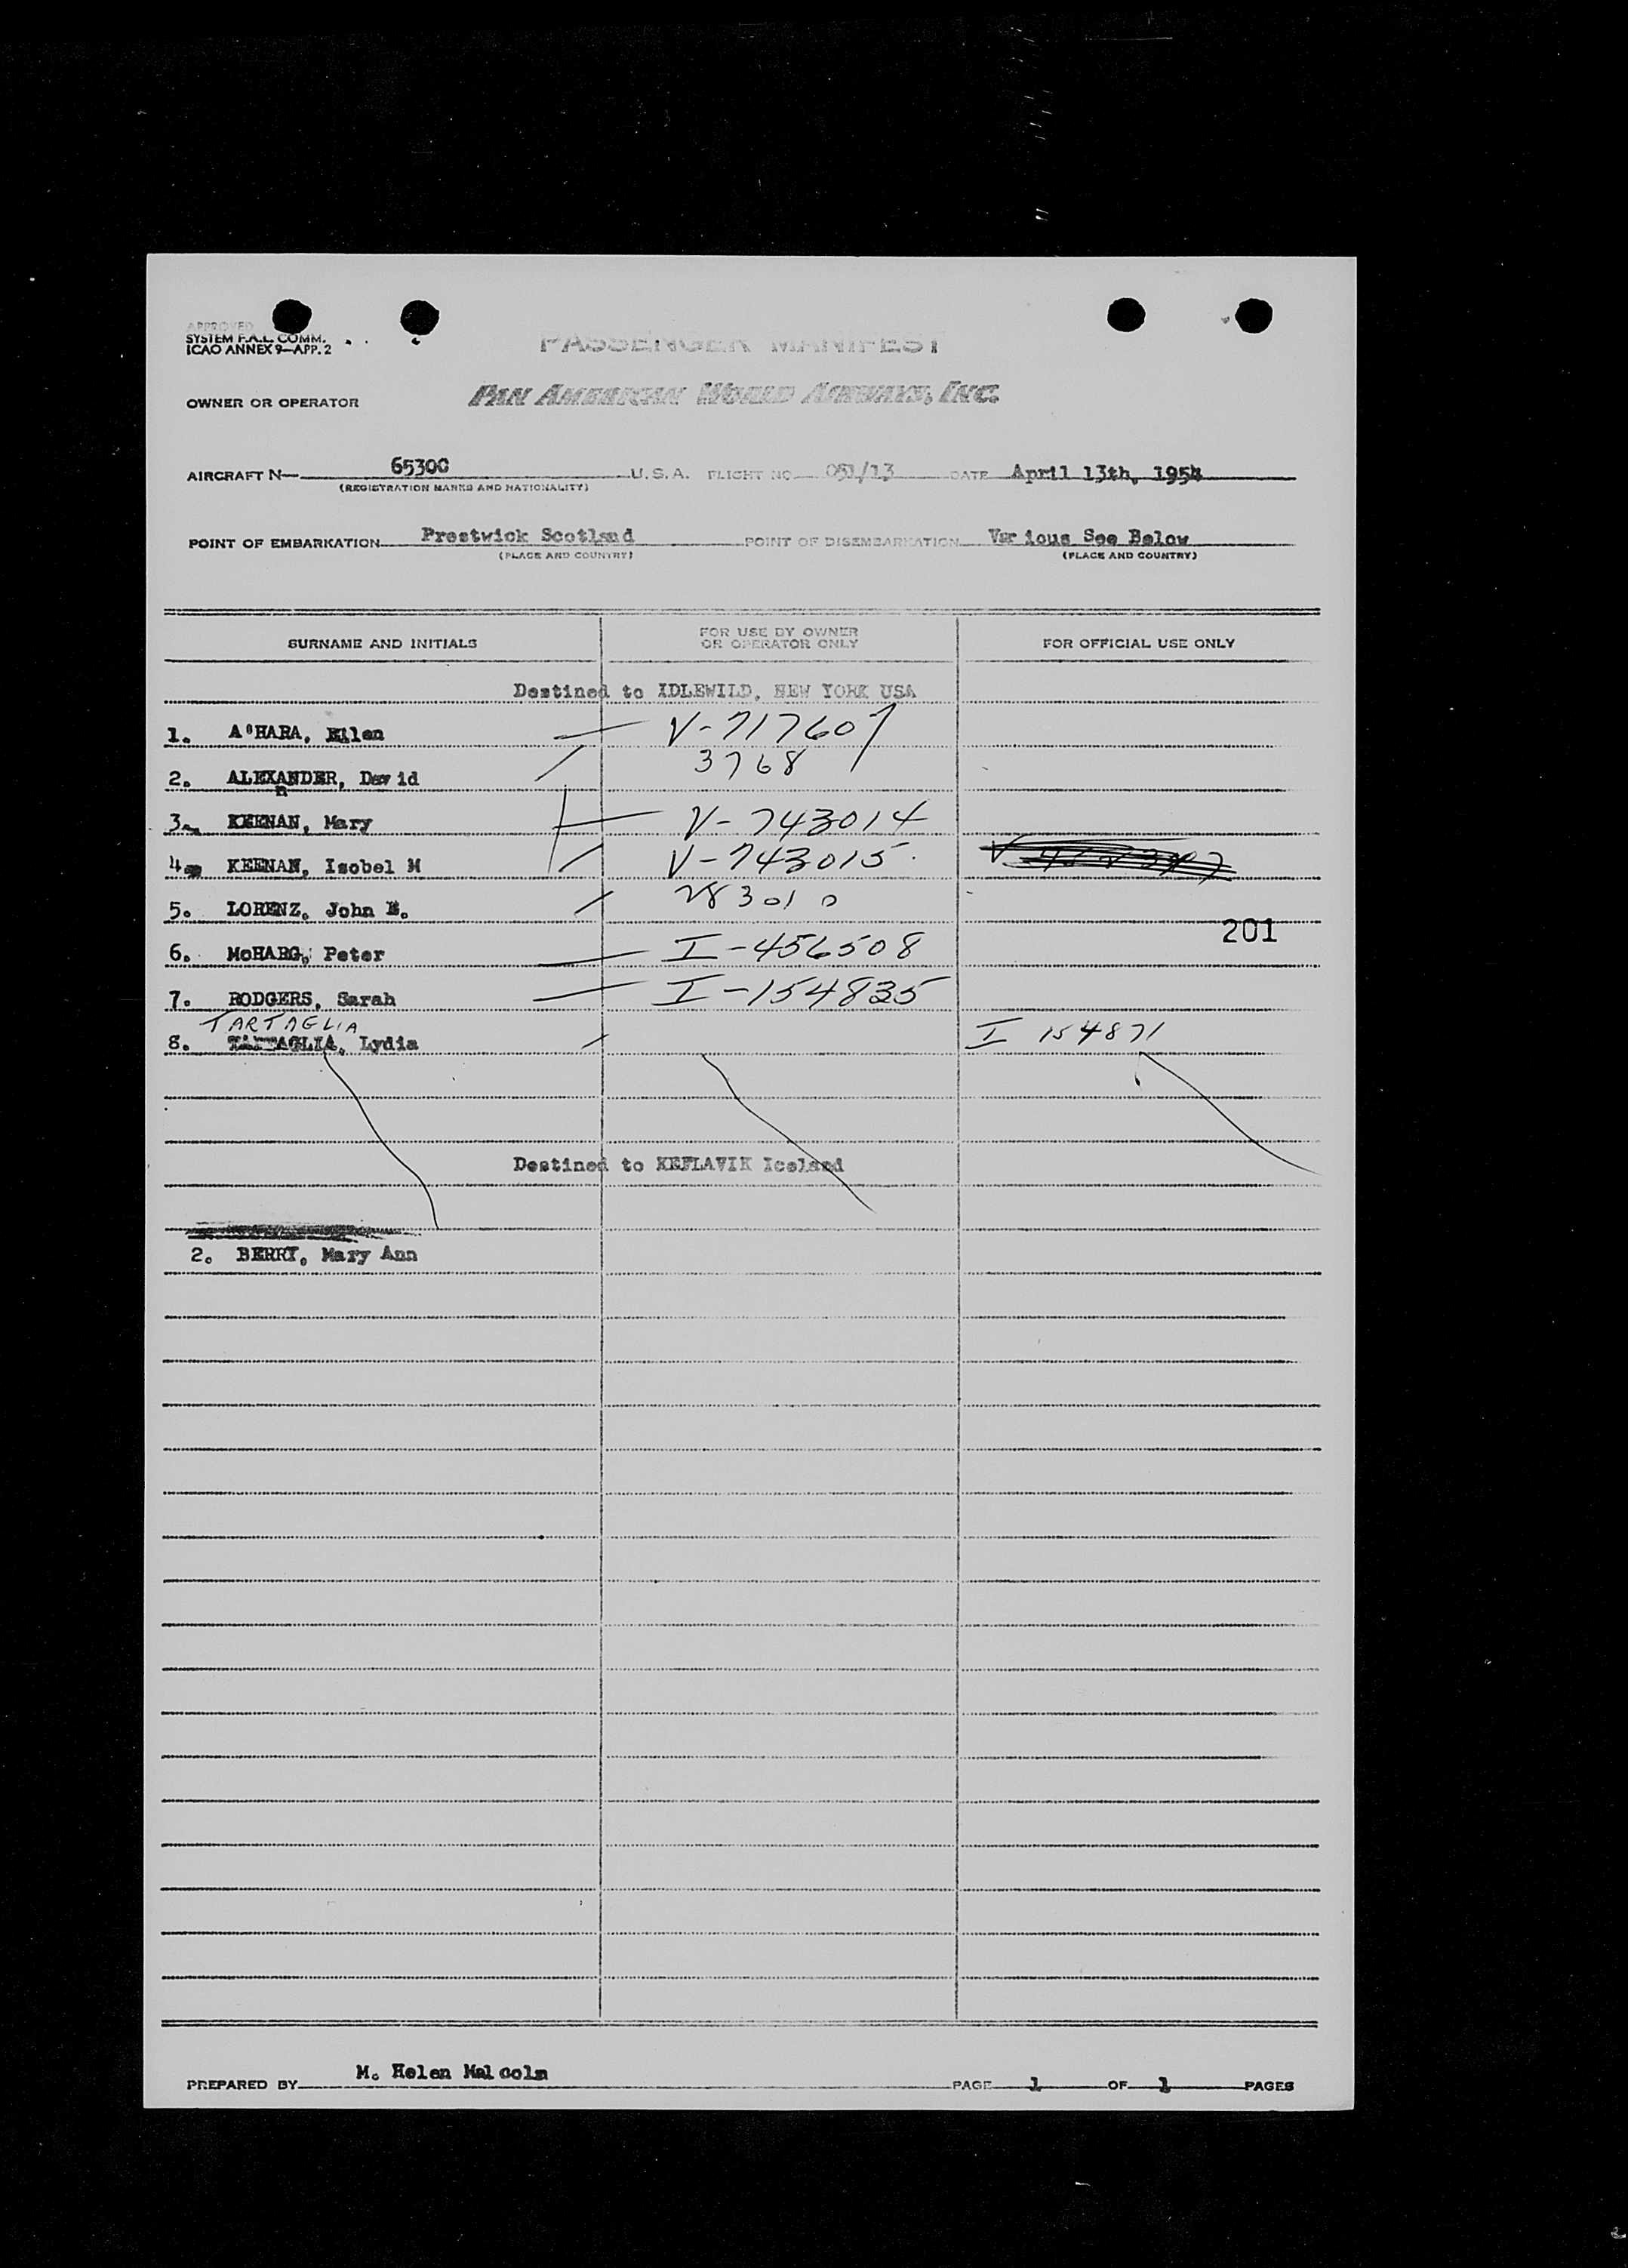 APPROVED
SYSTEM F.A.L. COMM.
ICAO ANNEX 9—APP. 2
PASSENGER MANIFEST
OWNER OR OPERATOR PAN AMERICAN WORLD AIRWAYS, INC.
AIRCRAFT N— 6530C U.S.A. FLIGHT NO 051/13 DATE April 13th, 1954
(REGISTRATION MARKS AND NATIONALITY)
POINT OF EMBARKATION Prestwick Scotland POINT OF DISEMBARKATION Various See Below
(PLACE AND COUNTRY) (PLACE AND COUNTRY)
SURNAME AND INITIALS FOR USE BY OWNER OR OPERATOR ONLY FOR OFFICIAL USE ONLY
Destined to IDLEWILD, NEW YORK USA
1. A'HARA, Eilen V-717607
2. ALEXANDER, David 3768
n
3. KEENAN, Mary V-743014
4. KEENAN, Isobel M V-743015
5. LORENZ, John E. 283010
201
6. McHARG, Peter I-456508
7. RODGERS, Sarah I-154835
TARTAGLIA
8. TATTAGLIA, Lydia I 154871
Destined to KEFLAVIK Iceland
2. BERRY, Mary Ann
PREPARED BY M. Helen Malcolm PAGE 1 OF 1 PAGES